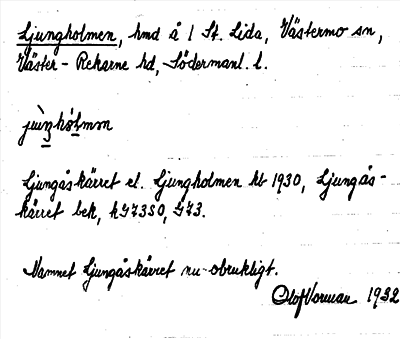 Ljungholmen, hmd å 1 St. Lida, Västermo sn,
Väster-Rekarne hd, Södermanl. l.
Ljungåskärret el. Ljungholmen kb 1930, Ljungås-
kärret bek, hG73SO, G73.
Namnet Ljungåskärret nu obrukligt.
Olof Norman 1932